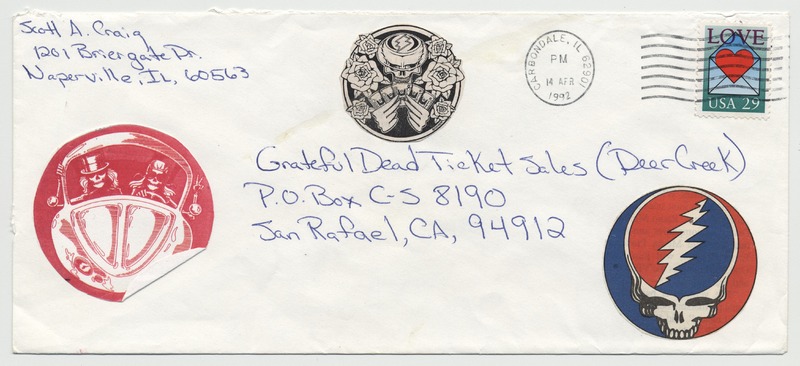 Scott A. Craig
1201 Briergate Dr.
Naperville, IL, 60563
CARBONDALE, IL 62901
PM
14 APR
1992
LOVE
USA 29
Grateful Dead Ticket Sales (Deer Creek)
P.O. Box C-S 8190
San Rafael, CA, 94912